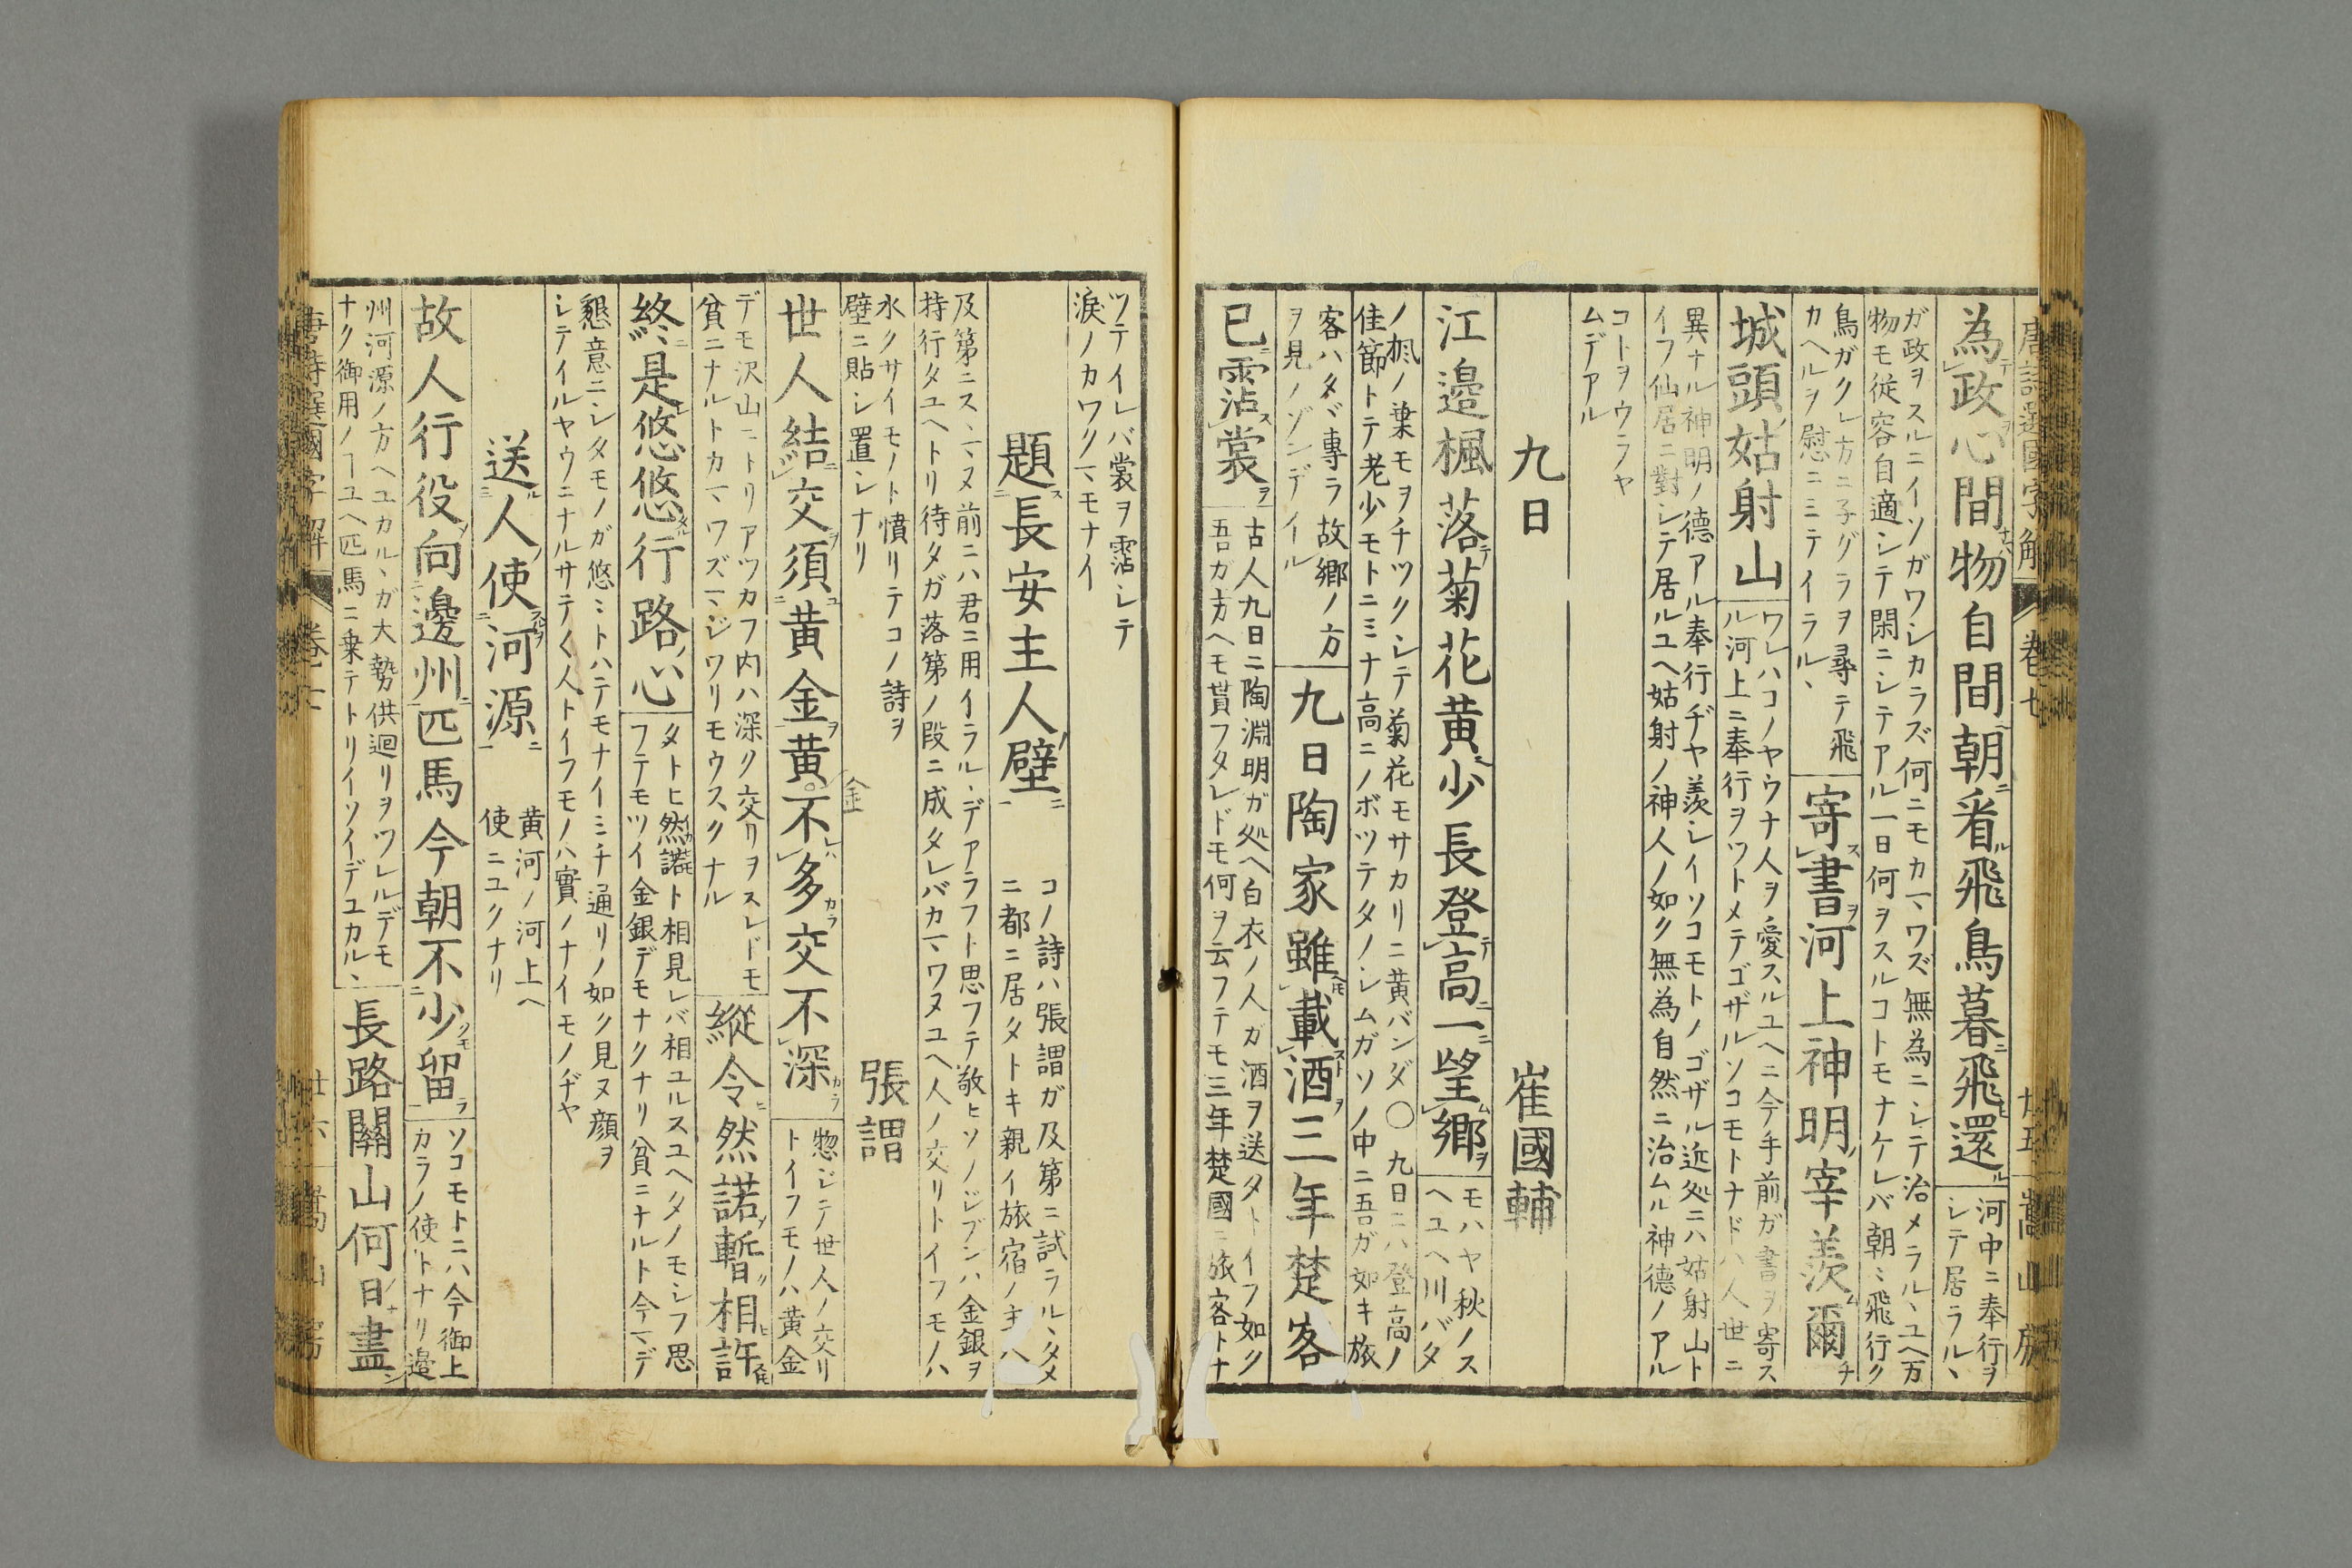 唐詩選國字解 卷七 廿五 嵩山房
為政心間物自間朝看飛鳥暮飛還 河中ニ奉行ヲシテ居ラルヽ
ガ政ヲスルニイソガワシカラズ何ニモカヽワズ無為ニシテ治メラルヽユヘ万
物モ従容自適シテ閑ニシテアル一日何ヲスルコトモナケレバ朝ニ飛行ク
鳥ガクレ方ニ子グラヲ尋テ飛
カヘルヲ慰ニミテイラルヽ
寄書河上神明宰羨爾
城頭姑射山 ワレハコノヤウナ人ヲ愛スルユヘニ今手前ガ書ヲ寄ス
ル河上ニ奉行ヲツトメテゴザルソコモトナドハ人世ニ
異ナル神明ノ德アル奉行ヂヤ羨シイソコモトノゴザル近処ニハ姑射山ト
イフ仙居ニ對シテ居ルユヘ姑射ノ神人ノ如ク無為自然ニ治ムル神德ノアル
コトヲウラヤ
ムデアル
九日 崔國輔
江邉楓落菊花黄少長登高一望鄉 モハヤ秋ノス
ヘユヘ川バタ
ノ楓ノ葉モヲチツクシテ菊花モサカリニ黄バンダ〇九日ニハ登高ノ
佳節トテ老少モトニミナ高ニノボツテタノシムガソノ中ニ吾ガ如キ旅
客ハタヾ專ラ故鄉ノ方
ヲ見ノゾンデイル
九日陶家雖載酒三年楚客
已霑裳 古人九日ニ陶淵明ガ処ヘ白衣ノ人ガ酒ヲ送タトイフ如ク
吾ガ方ヘモ貰フタレドモ何ヲ云フテモ三年楚國ニ旅客トナ
ツテイレバ裳ヲ霑シテ
淚ノカワクヿモナイ
題長安主人壁 コノ詩ハ張謂ガ及第ニ試ラルヽタメ
ニ都ニ居タトキ親イ旅宿ノ主ハ
及第ニスヽヌ前ニハ君ニ用イラルヽデアラフト思フテ敬ヒソノジブンハ金銀ヲ
持行タユヘトリ待タガ落第ノ段ニ成タレバカヽワヌユヘ人ノ交リトイフモノハ
水クサイモノト憤リテコノ詩ヲ
壁ニ貼シ置シナリ
張謂
世人結交須黄金黄不多交不深 惣ジテ世人ノ交リ
トイフモノハ黄金
金
デモ沢山ニトリアツカフ内ハ深ク交リヲスレドモ
貧ニナルトカヽワズマジワリモウスクナル
縱令然諾暫相許
終是悠悠行路心 タトヒ然諾ト相見レバ相ユルスユヘタノモシフ思
フテモツイ金銀デモナクナリ貧ニナルト今マデ
懇意ニシタモノガ悠ミトハテモナイミチ通リノ如ク見ヌ顔ヲ
シテイルヤウニナルサテく人トイフモノハ實ノナイモノヂヤ
送人使河源 黄河ノ河上ヘ
使ニユクナリ
故人行役向邊州匹馬今朝不少留 ソコモトニハ今御上
カラノ使トナリ邉
州河源ノ方ヘユカルヽガ大勢供廻リヲツレルデモ
ナク御用ノヿユヘ匹馬ニ乗テトリイソイデユカルヽ
長路關山何日盡
唐詩選國字解 卷七 廿六 嵩山房